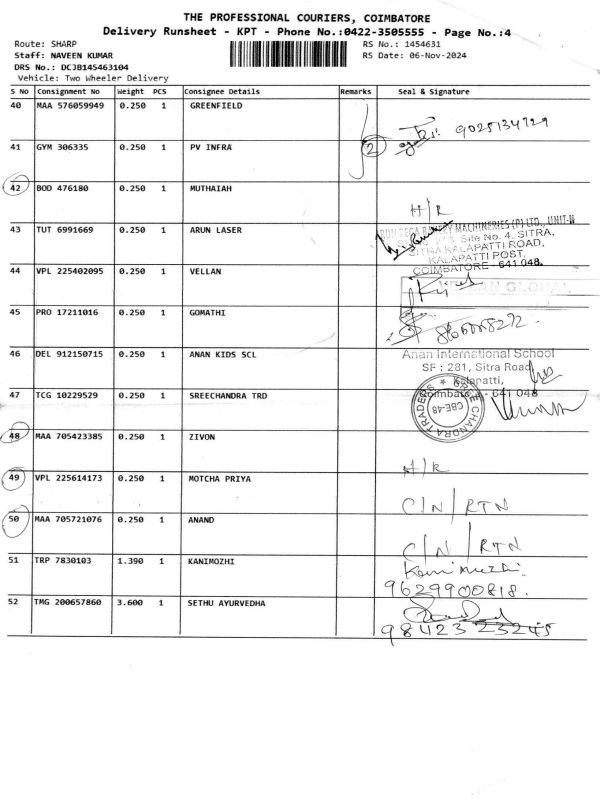 THE PROFESSIONAL COURIERS, COIMBATORE
Delivery Runsheet - KPT - Phone No.:0422-3505555 - Page No.:4
Route: SHARP RS No.: 1454631
Staff: NAVEEN KUMAR RS Date: 06-Nov-2024
DRS No.: DCJB145463104
Vehicle: Two Wheeler Delivery
S No Consignment No Weight PCS Consignee Details Remarks Seal & Signature
40 MAA 576059949 0.250 1 GREENFIELD
2 9025134729
41 GYM 306335 0.250 1 PV INFRA
42 BOD 476180 0.250 1 MUTHAIAH
H/R
43 TUT 6991669 0.250 1 ARUN LASER
MACHINERIES (P) LTD., UNIT-IV
Site No. 4, SITRA,
SITRA KALAPATTI ROAD,
KALAPATTI POST,
COIMBATORE - 641 048.
44 VPL 225402095 0.250 1 VELLAN
GLOBAL
45 PRO 17211016 0.250 1 GOMATHI
46 DEL 912150715 0.250 1 ANAN KIDS SCL
Anan International School
SF : 281, Sitra Road
Kalapatti,
Coimbatore - 641 048
47 TCG 10229529 0.250 1 SREECHANDRA TRD
SREE CHANDRA TRADERS
CBE-48
48 MAA 705423385 0.250 1 ZIVON
H/R
49 VPL 225614173 0.250 1 MOTCHA PRIYA
C/N/RTN
50 MAA 705721076 0.250 1 ANAND
C/N/RTN
51 TRP 7830103 1.390 1 KANIMOZHI
Kanimozhi
9629900818.
52 TMG 200657860 3.600 1 SETHU AYURVEDHA
98423 23245